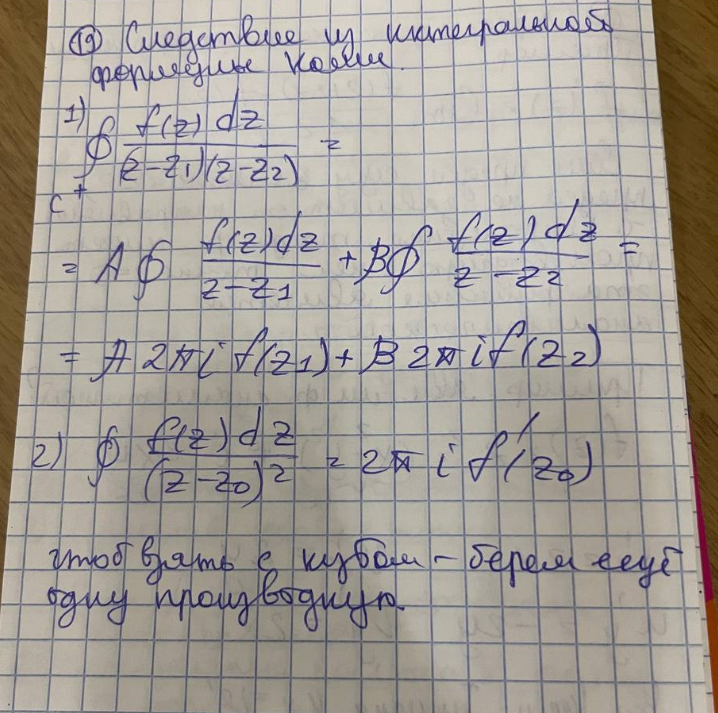 19 Следствие из интегральной
формулы Коши.
1) ∮ f(z) dz / (z-z₁)(z-z₂) =
C⁺
= A ∮ f(z)dz / z-z₁ + B ∮ f(z)dz / z-z₂ =
= A 2πi f(z₁) + B 2πi f(z₂)
2) ∮ f(z) dz / (z-z₀)² = 2πi f'(z₀)
чтоб взять с кубом - берем ещё
одну производную.